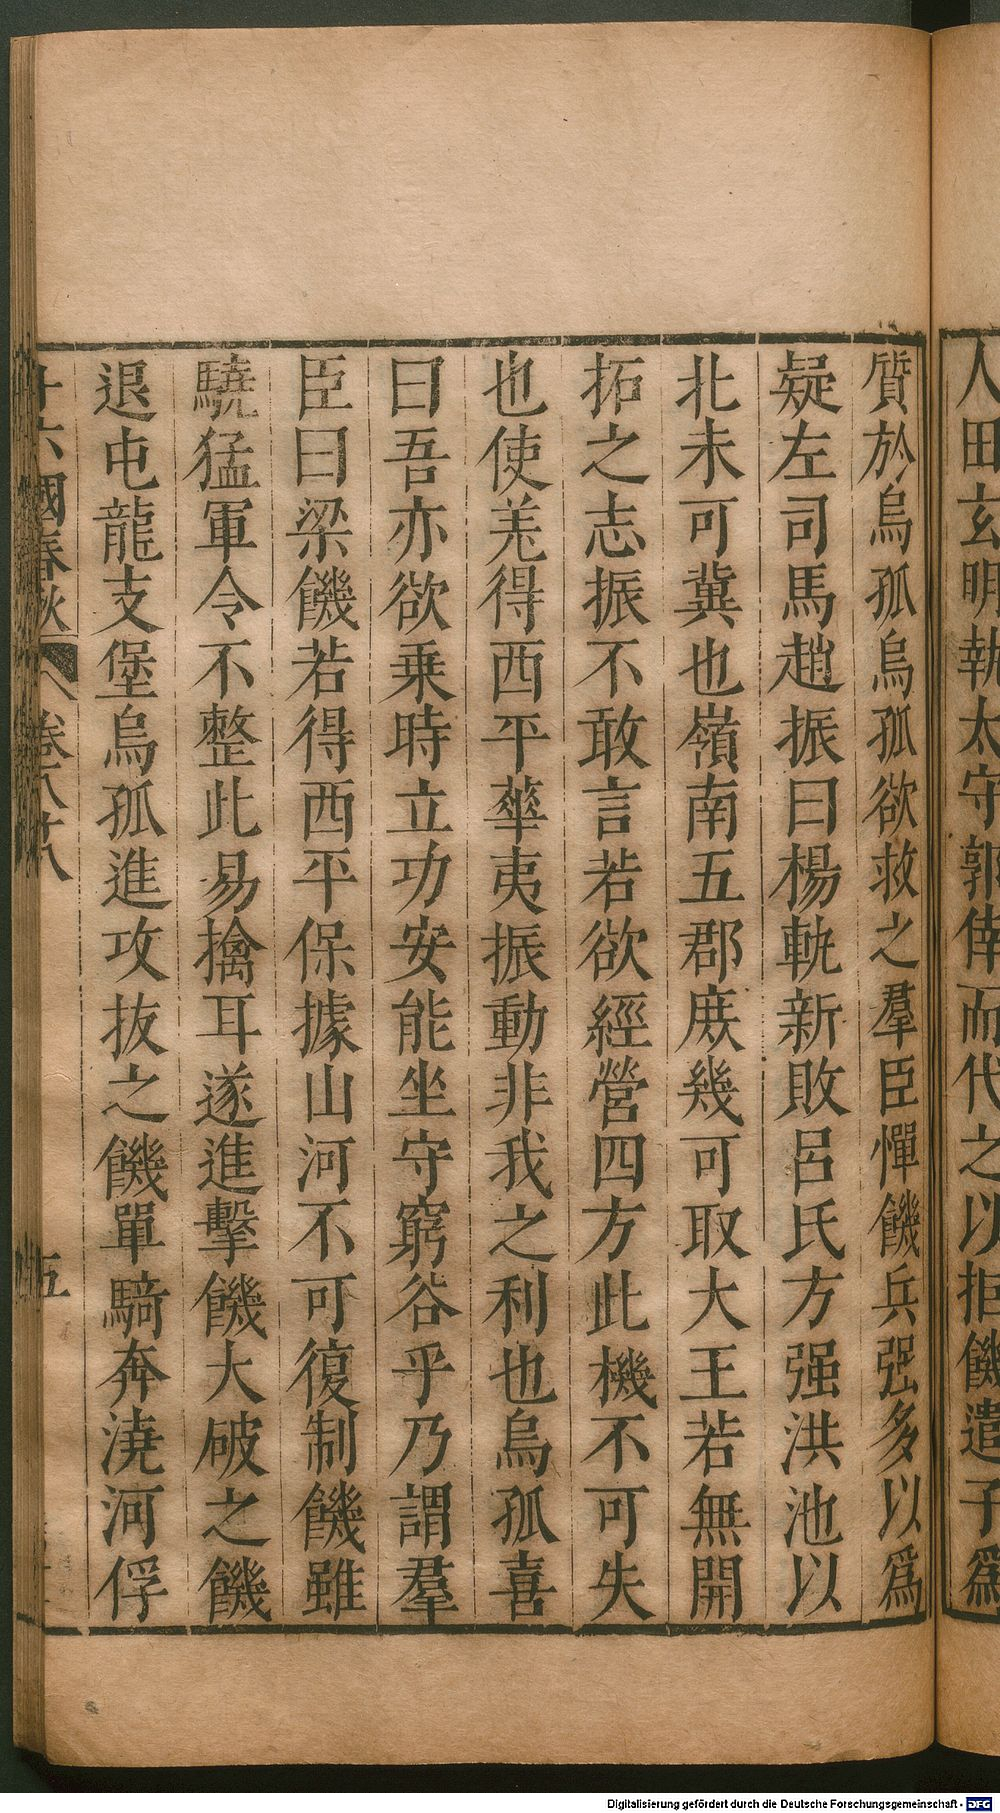 人田玄明執太守郭倖而代之以拒饑遣子爲
質於烏孤烏孤欲救之羣臣憚饑兵强多以爲
疑左司馬趙振曰楊軌新敗呂氏方强洪池以
北未可冀也嶺南五郡庻幾可取大王若無開
拓之志振不敢言若欲經營四方此機不可失
也使羌得西平華夷振動非我之利也烏孤喜
曰吾亦欲乗時立功安能坐守窮谷乎乃謂羣
臣曰梁饑若得西平保據山河不可復制饑雖
驍猛軍令不整此易擒耳遂進擊饑大破之饑
退屯龍支堡烏孤進攻抜之饑單騎奔澆河俘
十六國春秋 卷八十八 五
Digitalisierung gefördert durch die Deutsche Forschungsgemeinschaft - DFG